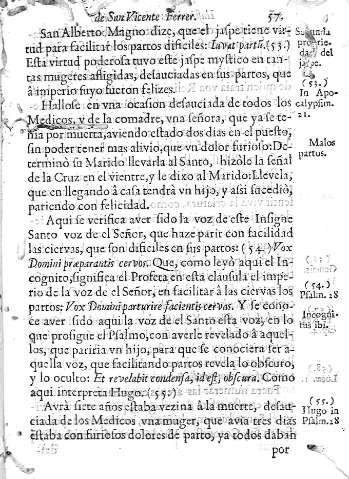 de San Vicente Ferrer. 57.
San Alberto Magno dize, que el jaspe tiene vir-
tud para facilitar los partos dificiles: Iuvat partū. (53.)
Esta virtud poderosa tuvo este jaspe mystico en tan-
tas mugeres afligidas, desauciadas en sus partos, que
à imperio suyo fueron felizes.
Hallose en vna ocasion desauciada de todos los
Medicos, y de la comadre, vna señora, que ya se te-
nia por muerta, aviendo estado dos dias en el puesto,
sin poder tener mas alivio, que vn dolor furioso: De-
terminò su Marido llevarla al Santo, hizole la señal
de la Cruz en el vientre, y le dixo al Marido: Llevela,
que en llegando à casa tendrà vn hijo, y assi sucediò,
pariendo con felicidad.
Aqui se verifica aver sido la voz de este Insigne
Santo voz de el Señor, que haze parir con facilidad
las ciervas, que son dificiles en sus partos: (54.) Vox
Domini præparantis cervos. Que, como leyò aqui el In-
cognito, significa el Profeta en esta clausula el impe-
rio de la voz de el Señor, en facilitar à las ciervas los
partos: Vox Domini parturire facientis cervas. Y se cono-
ce aver sido aqui la voz de el Santo esta voz, en lo
que prosigue el Psalmo, con averle revelado à aque-
llos, que pariria vn hijo, para que se conociera ser a-
quella voz, que facilitando partos revela lo obscuro,
y lo oculto: Et revelabit condensa, id est, obscura. Como
aqui interpreta Hugo. (55.)
Avrà siete años estaba vezina à la muerte, desau-
ciada de los Medicos vna muger, que avia tres dias
estaba con furiosos dolores de parto, ya todos daban
por
Segunda
proprie-
dad del
jaspe.
(53.)
In Apo-
calypsim.
21.
Malos
partus.
(54.)
Psalm. 28
Incogni-
tus ibi.
(55.)
Hugo in
Psalm. 28